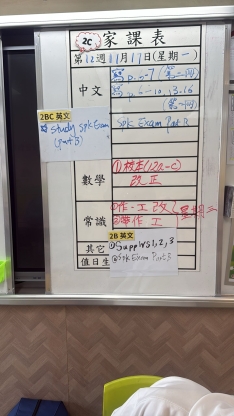 2C 家課表
第12週11月17日(星期一)
中文
寫p.5-7(第一回)
寫p.6-10,13-16
(第一回)
2BC 英文
Study Spk Exam
(Part B)
Spk Exam Part B
數學
①校本(12a-c)
改正
常識
①作-工改
②帶作工
星期三
2B 英文
①Supp WS1,2,3
②Spk Exam Part B
其它
值日生